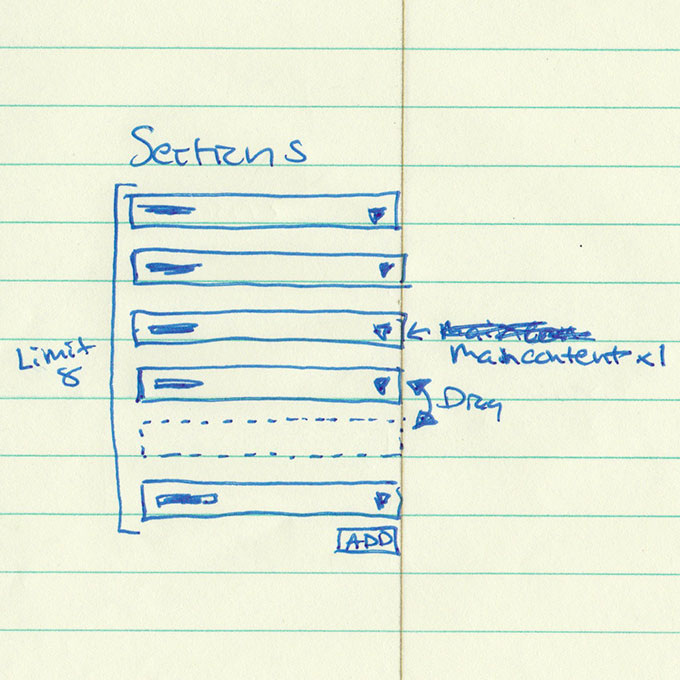 Sections
Limit
8
Maincontent x1
Drag
ADD